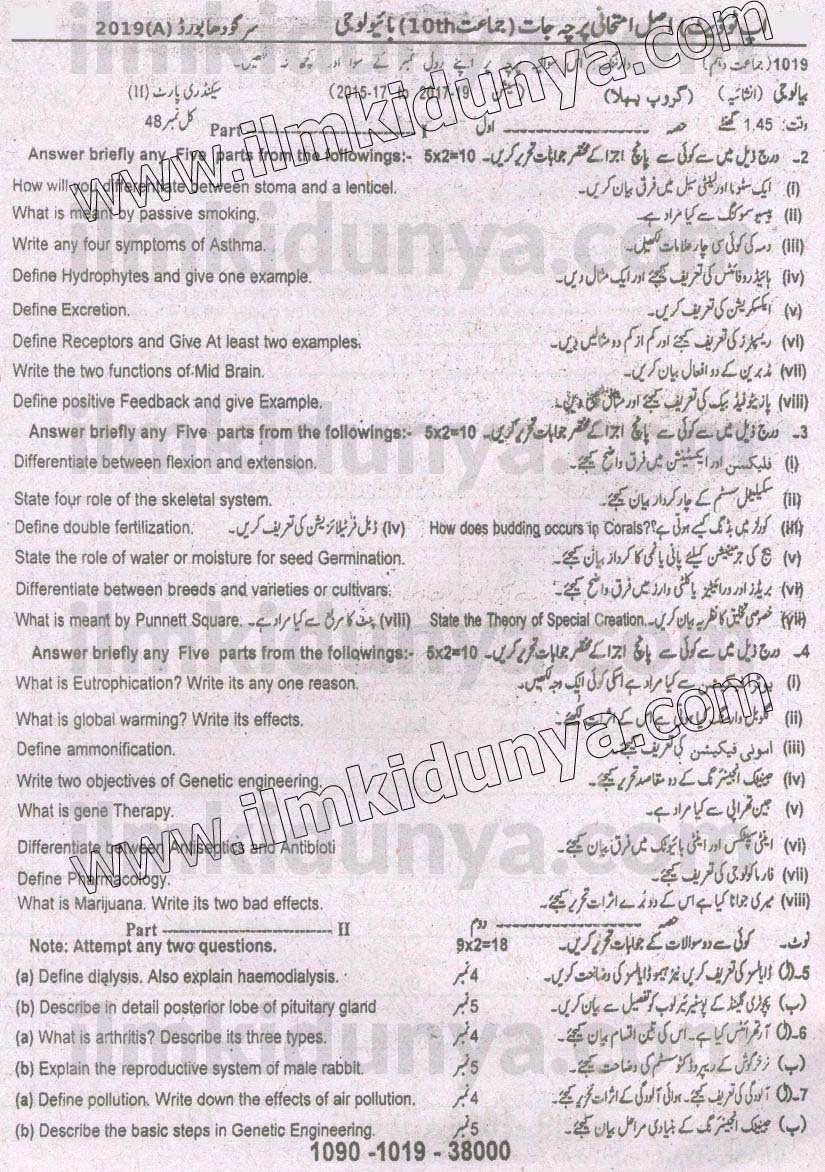 اپ ٹو ڈیٹ اصل امتحانی پرچہ جات (جماعت 10th) بائیولوجی سرگودھا بورڈ 2019(A)
1019 (جماعت دہم) اس سوالیہ پرچہ پر اپنے رول نمبر کے سوا اور کچھ نہ لکھیں۔
بیالوجی (انشائیہ) (گروپ پہلا) (2015-17 to 2017-19) سیکنڈری پارٹ (II)
وقت: 1.45 گھنٹے حصہ ---------- اول Part ---------- I کل نمبر 48
Answer briefly any Five parts from the followings:- 5x2=10 2۔ درج ذیل میں سے کوئی سے پانچ اجزا کے مختصر جوابات تحریر کریں۔
How will you differentiate between stoma and a lenticel. (i) ایک سٹوما اور لینٹی سیل میں فرق بیان کریں۔
What is meant by passive smoking. (ii) پیسو سموکنگ سے کیا مراد ہے۔
Write any four symptoms of Asthma. (iii) دمہ کی کوئی سی چار علامات لکھیں۔
Define Hydrophytes and give one example. (iv) ہائیڈروفائٹس کی تعریف کیجئے اور ایک مثال دیں۔
Define Excretion. (v) ایکسکریشن کی تعریف کریں۔
Define Receptors and Give At least two examples. (vi) ریسپٹرز کی تعریف کیجئے اور کم از کم دو مثالیں دیں۔
Write the two functions of Mid Brain. (vii) مڈبرین کے دو افعال بیان کریں۔
Define positive Feedback and give Example. (viii) پازیٹو فیڈ بیک کی تعریف کیجئے اور مثال بھی دیں۔
Answer briefly any Five parts from the followings:- 5x2=10 3۔ درج ذیل میں سے کوئی سے پانچ اجزا کے مختصر جوابات تحریر کریں۔
Differentiate between flexion and extension. (i) فلیکسن اور ایکسٹینشن میں فرق واضح کیجئے۔
State four role of the skeletal system. (ii) سکیلیٹل سسٹم کے چار کردار بیان کیجئے۔
Define double fertilization. (iv) ڈبل فرٹیلائزیشن کی تعریف کریں۔ How does budding occurs in Corals? (iii) کورلز میں بڈنگ کیسے ہوتی ہے؟
State the role of water or moisture for seed Germination. (v) بیج کی جرمینیشن کیلئے پانی یا نمی کا کردار بیان کیجئے۔
Differentiate between breeds and varieties or cultivars. (vi) بریڈز اور ورائٹیز یا کلٹی وارز میں فرق واضح کیجئے۔
What is meant by Punnett Square. (viii) پنٹ کا مربع سے کیا مراد ہے۔ State the Theory of Special Creation. (vii) خصوصی تخلیق کا نظریہ بیان کریں۔
Answer briefly any Five parts from the followings:- 5x2=10 4۔ درج ذیل میں سے کوئی سے پانچ اجزا کے مختصر جوابات تحریر کریں۔
What is Eutrophication? Write its any one reason. (i) سے کیا مراد ہے اسکی کوئی ایک وجہ لکھیں۔
What is global warming? Write its effects. (ii) گلوبل وارمنگ کیا ہوتی ہے اس کے اثرات لکھئے۔
Define ammonification. (iii) امونی فیکیشن کی تعریف کیجئے۔
Write two objectives of Genetic engineering. (iv) جینیٹک انجینئرنگ کے دو مقاصد تحریر کیجئے۔
What is gene Therapy. (v) جین تھراپی سے کیا مراد ہے۔
Differentiate between Antiseptics and Antibioti (vi) اینٹی سپٹکس اور اینٹی بائیوٹک میں فرق بیان کیجئے۔
Define Pharmacology. (vii) فارماکولوجی کی تعریف کیجئے۔
What is Marijuana. Write its two bad effects. (viii) میری جوانا کیا ہے اس کے دو برے اثرات تحریر کیجئے۔
Part ---------- II حصہ ---------- دوم
Note: Attempt any two questions. 9x2=18 نوٹ۔ کوئی سے دو سوالات کے جوابات تحریر کریں۔
(a) Define dialysis. Also explain haemodialysis. 4 نمبر 5۔(ا) ڈایالسز کی تعریف کریں نیز ہیموڈایالسز کی وضاحت کریں۔
(b) Describe in detail posterior lobe of pituitary gland 5 نمبر (ب) پچوٹری گلینڈ کے پوسٹیریئر لوب کو تفصیل سے بیان کریں۔
(a) What is arthritis? Describe its three types. 4 نمبر 6۔(ا) آرتھرائٹس کیا ہے۔ اس کی تین اقسام بیان کیجئے۔
(b) Explain the reproductive system of male rabbit. 5 نمبر (ب) نر خرگوش کے ریپروڈکٹو سسٹم کی وضاحت کیجئے۔
(a) Define pollution. Write down the effects of air pollution. 4 نمبر 7۔(ا) آلودگی کی تعریف کیجئے۔ ہوائی آلودگی کے اثرات تحریر کیجئے۔
(b) Describe the basic steps in Genetic Engineering. 5 نمبر (ب) جینیٹک انجینئرنگ کے بنیادی مراحل بیان کیجئے۔
1090 -1019 - 38000
www.ilmkidunya.com
www.ilmkidunya.com
ilmkidunya.com